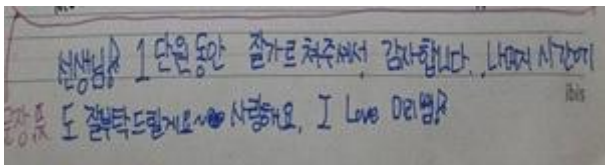 선생님 1단원동안 잘가르쳐주셔서 감사합니다. 나머지 시간에
도 잘부탁드릴게요~ 사랑해요, I Love 미리쌤
ibis